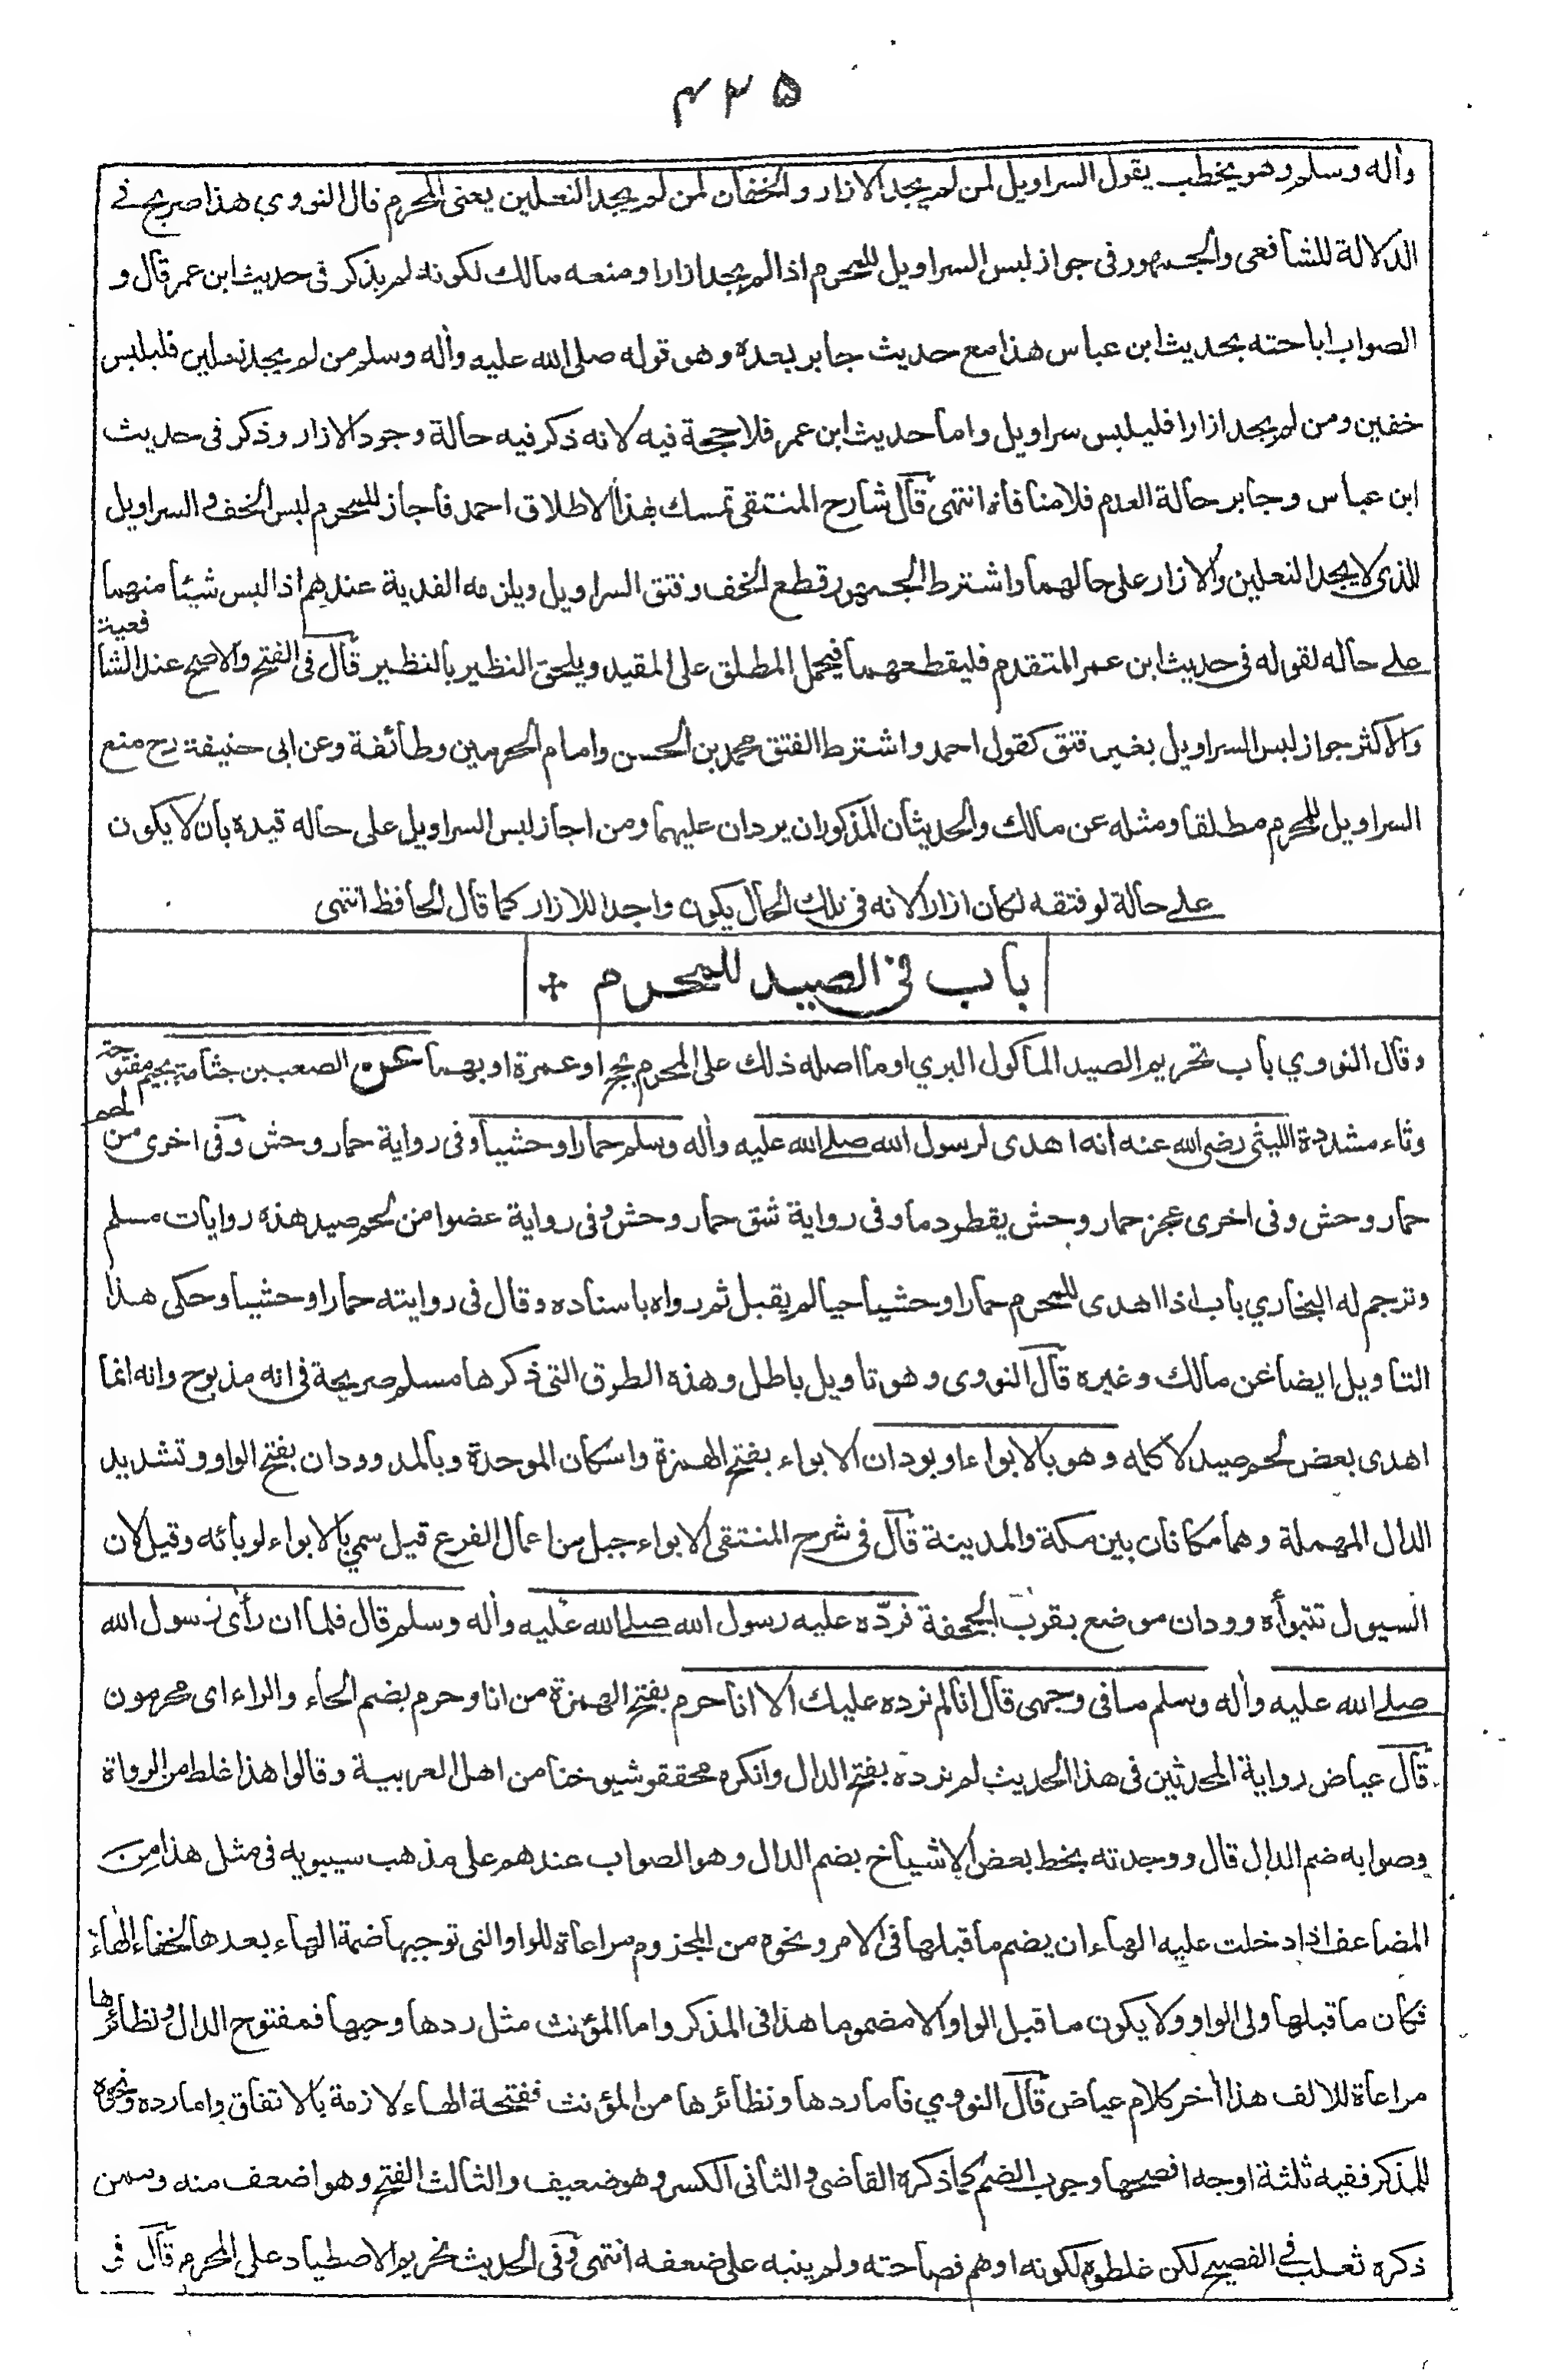 ۴۳۵
واٰله وسلم وهو يخطب يقول السراويل لمن لم يجد الازار والخفان لمن لم يجد النعلين يعنى المحرم قال النووي هذا صريح في
الدلالة للشافعى والجمهور فى جواز لبس السراويل للمحرم اذا لم يجد ازارا ومنعه مالك لكونه لم يذكر فى حديث ابن عمر قال و
الصواب اباحته بحديث ابن عباس هذا مع حديث جابر بعده وهو قوله صلى الله عليه واٰله وسلم من لم يجد نعلين فليلبس
خفين ومن لم يجد ازارا فليلبس سراويل واما حديث ابن عمر فلا حجة فيه لانه ذكر فيه حالة وجود الازار وذكر فى حديث
ابن عباس وجابر حالة العدم فلا منافاة انتهى قال شارح المنتقى تمسك بهذا الاطلاق احمد فاجاز للمحرم لبس الخف والسراويل
للذى لا يجد النعلين والازار على حالهما واشترط الجمهور قطع الخف وفتق السراويل ويلزمه الفدية عندهم اذا لبس شيئا منهما
على حاله لقوله فى حديث ابن عمر المتقدم فليقطعهما فيحمل المطلق على المقيد ويلحق النظير بالنظير قال فى الفتح والاصح عند الشافعية
والاكثر جواز لبس السراويل بغير فتق كقول احمد واشترط الفتق محمد بن الحسن وامام الحرمين وطائفة وعن ابى حنيفة رح منع
السراويل للمحرم مطلقا ومثله عن مالك والحديثان المذكوران يردان عليهما ومن اجاز لبس السراويل على حاله قيده بان لا يكون
على حالة لو فتقه لكان ازارا لانه فى تلك الحال يكون واجدا للازار كما قال الحافظ انتهى
باب فى الصيد للمحرم +
وقال النووي باب تحريم الصيد الماكول البري او ما اصله ذلك على المحرم بحج او عمرة او بهما عن الصعب بن جثامة بجيم مفتوحة
وثاء مشددة الليثى رضى الله عنه انه اهدى لرسول الله صلى الله عليه واٰله وسلم حمارا وحشيا وفى رواية حمار وحش وفى اخرى من لحم
حمار وحش وفى اخرى عجز حمار وحش يقطر دما وفى رواية شق حمار وحش وفى رواية عضوا من لحم صيد هذه روايات مسلم
وترجم له البخاري باب اذا اهدى للمحرم حمارا وحشيا حيا لم يقبل ثم رواه باسناده وقال فى روايته حمارا وحشيا وحكى هذا
التاويل ايضا عن مالك وغيره قال النووى وهو تاويل باطل وهذه الطرق التى ذكرها مسلم صريحة فى انه مذبوح وانه انما
اهدى بعض لحم صيد لا كله وهو بالابواء او بودان الابواء بفتح الهمزة واسكان الموحدة وبالمد وودان بفتح الواو وتشديد
الدال المهملة وهما مكانان بين مكة والمدينة قال فى شرح المنتقى الابواء جبل من اعمال الفرع قيل سمي بالابواء لوبائه وقيل لان
السيول تتبوأه وودان موضع بقرب الجحفة فردّه عليه رسول الله صلى الله عليه واٰله وسلم قال فلما ان رأى رسول الله
صلى الله عليه واٰله وسلم ما فى وجهى قال انا لم نرده عليك الا انا حرم بفتح الهمزة من انا وحرم بضم الحاء والراء اى محرمون
قال عياض رواية المحدثين فى هذا الحديث لم نرده بفتح الدال وانكره محققو شيوخنا من اهل العربية وقالوا هذا غلط من الرواة
وصوابه ضم الدال قال ووجدته بخط بعض الاشياخ بضم الدال وهو الصواب عندهم على مذهب سيبويه فى مثل هذا من
المضاعف اذا دخلت عليه الهاء ان يضم ما قبلها فى الامر ونحوه من المجزوم مراعاة للواو التى توجبها ضمة الهاء بعدها لخفاء الهاء
فكان ما قبلها ولى الواو ولا يكون ما قبل الواو الا مضموما هذا فى المذكر واما المؤنث مثل ردها وجبها فمفتوح الدال ونظائرها
مراعاة للالف هذا اٰخر كلام عياض قال النووي فاما ردها ونظائرها من المؤنث ففتحة الهاء لازمة بالاتفاق واما رده ونحوه
للمذكر ففيه ثلثة اوجه افصحها وجوب الضم كما ذكره القاضى والثانى الكسر وهو ضعيف والثالث الفتح وهو اضعف منه وممن
ذكره ثعلب في الفصيح لكن غلطوه لكونه اوهم فصاحته ولم ينبه على ضعفه انتهى وفى الحديث تحريم الاصطياد على المحرم قال فى